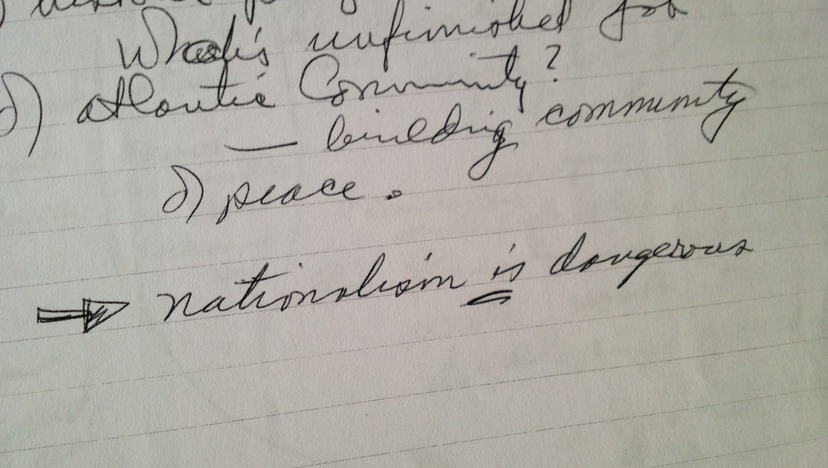 What's unfinished for
d) Atlantic Community?
— building community
d) peace.
nationalism is dangerous